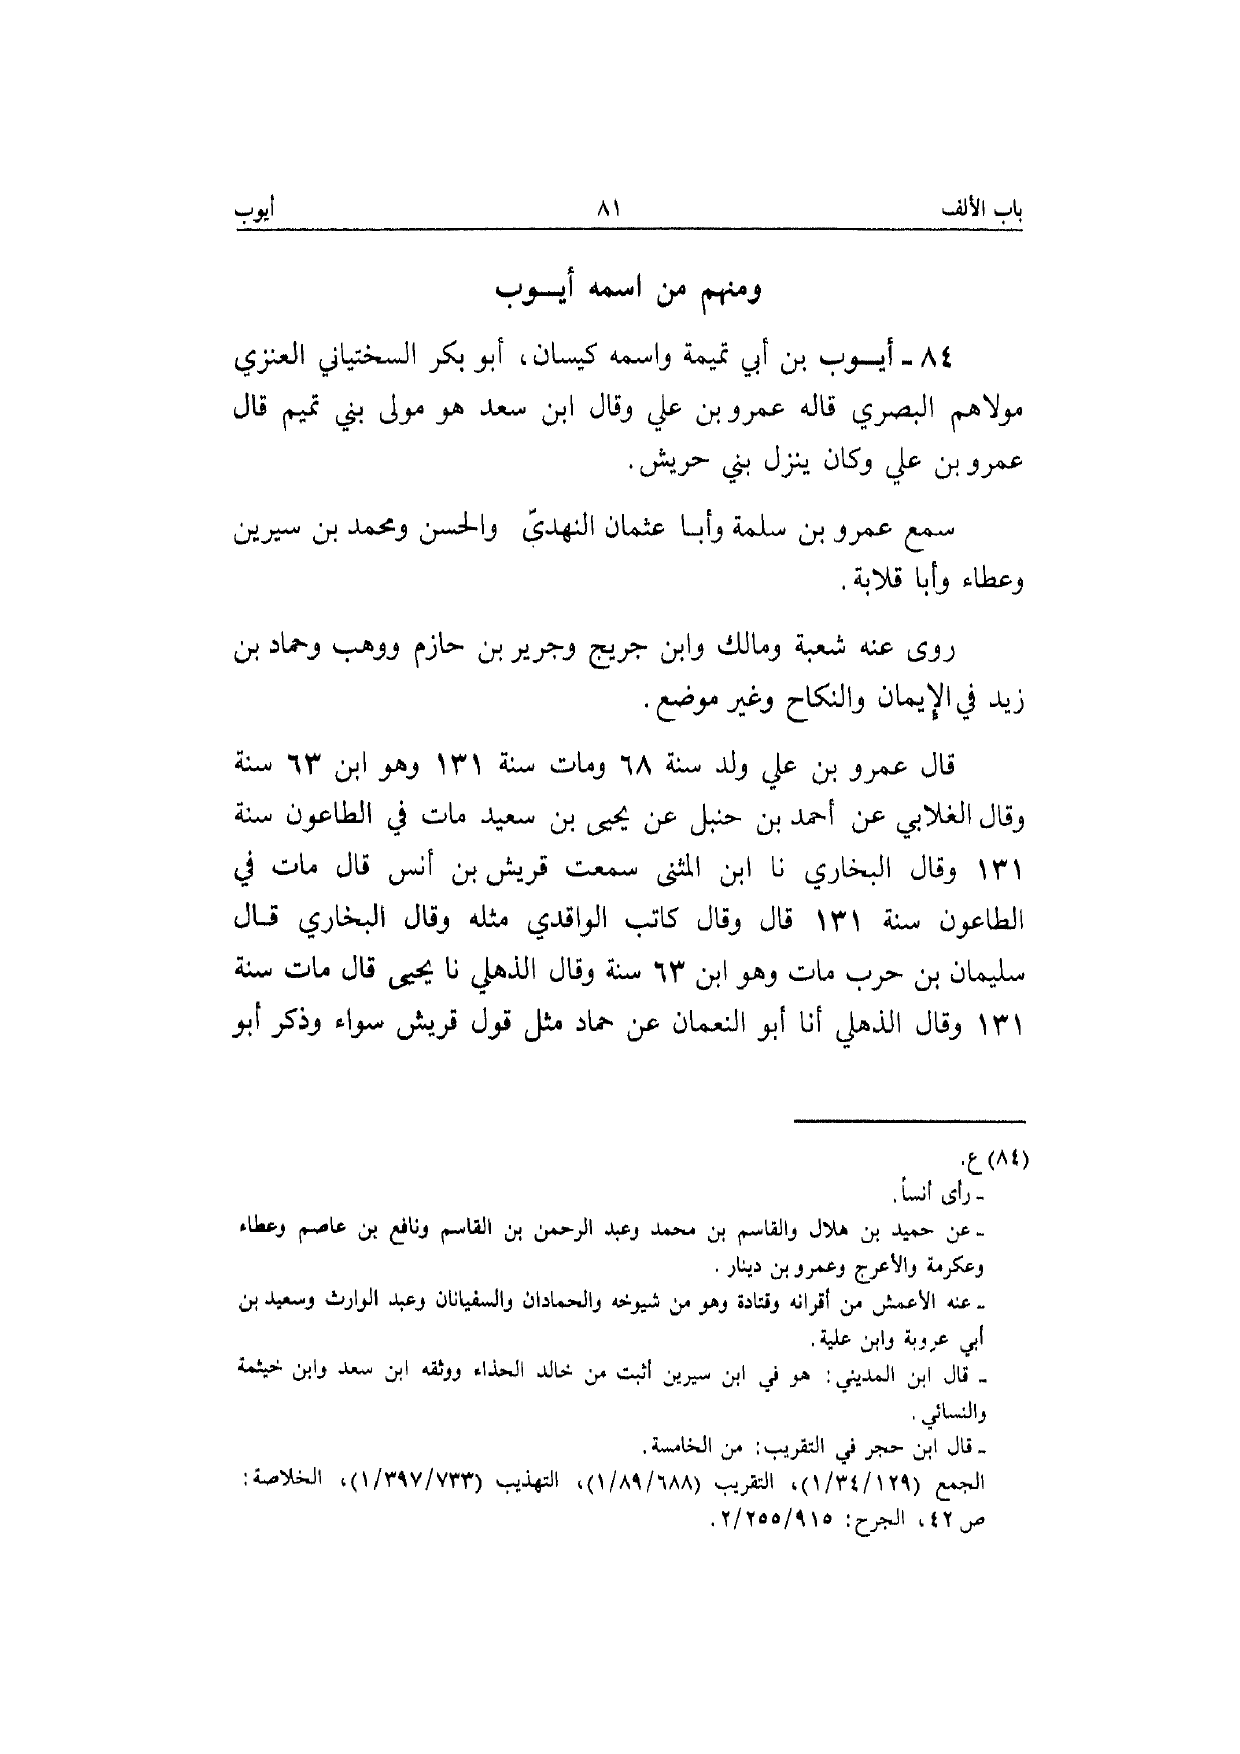 باب الألف ٨١ أيوب
ومنهم من اسمه أيـوب
٨٤ ـ أيـوب بن أبي تميمة واسمه كيسان، أبو بكر السختياني العنزي
مولاهم البصري قاله عمرو بن علي وقال ابن سعد هو مولى بني تميم قال
عمرو بن علي وكان ينزل بني حريش.
سمع عمرو بن سلمة وأبا عثمان النهديّ والحسن ومحمد بن سيرين
وعطاء وأبا قلابة.
روى عنه شعبة ومالك وابن جريج وجرير بن حازم ووهب وحماد بن
زيد في الإيمان والنكاح وغير موضع.
قال عمرو بن علي ولد سنة ٦٨ ومات سنة ١٣١ وهو ابن ٦٣ سنة
وقال الغلابي عن أحمد بن حنبل عن يحيى بن سعيد مات في الطاعون سنة
١٣١ وقال البخاري نا ابن المثنى سمعت قريش بن أنس قال مات في
الطاعون سنة ١٣١ قال وقال كاتب الواقدي مثله وقال البخاري قال
سليمان بن حرب مات وهو ابن ٦٣ سنة وقال الذهلي نا يحيى قال مات سنة
١٣١ وقال الذهلي أنا أبو النعمان عن حماد مثل قول قريش سواء وذكر أبو
(٨٤) ع.
ـ رأى أنساً.
ـ عن حميد بن هلال والقاسم بن محمد وعبد الرحمن بن القاسم ونافع بن عاصم وعطاء
وعكرمة والأعرج وعمرو بن دينار.
ـ عنه الأعمش من أقرانه وقتادة وهو من شيوخه والحمادان والسفيانان وعبد الوارث وسعيد بن
أبي عروبة وابن علية.
ـ قال ابن المديني: هو في ابن سيرين أثبت من خالد الحذاء ووثقه ابن سعد وابن خيثمة
والنسائي.
ـ قال ابن حجر في التقريب: من الخامسة.
الجمع (١/٣٤/١٢٩)، التقريب (١/٨٩/٦٨٨)، التهذيب (١/٣٩٧/٧٣٣)، الخلاصة:
ص ٤٢، الجرح: ٢/٢٥٥/٩١٥.